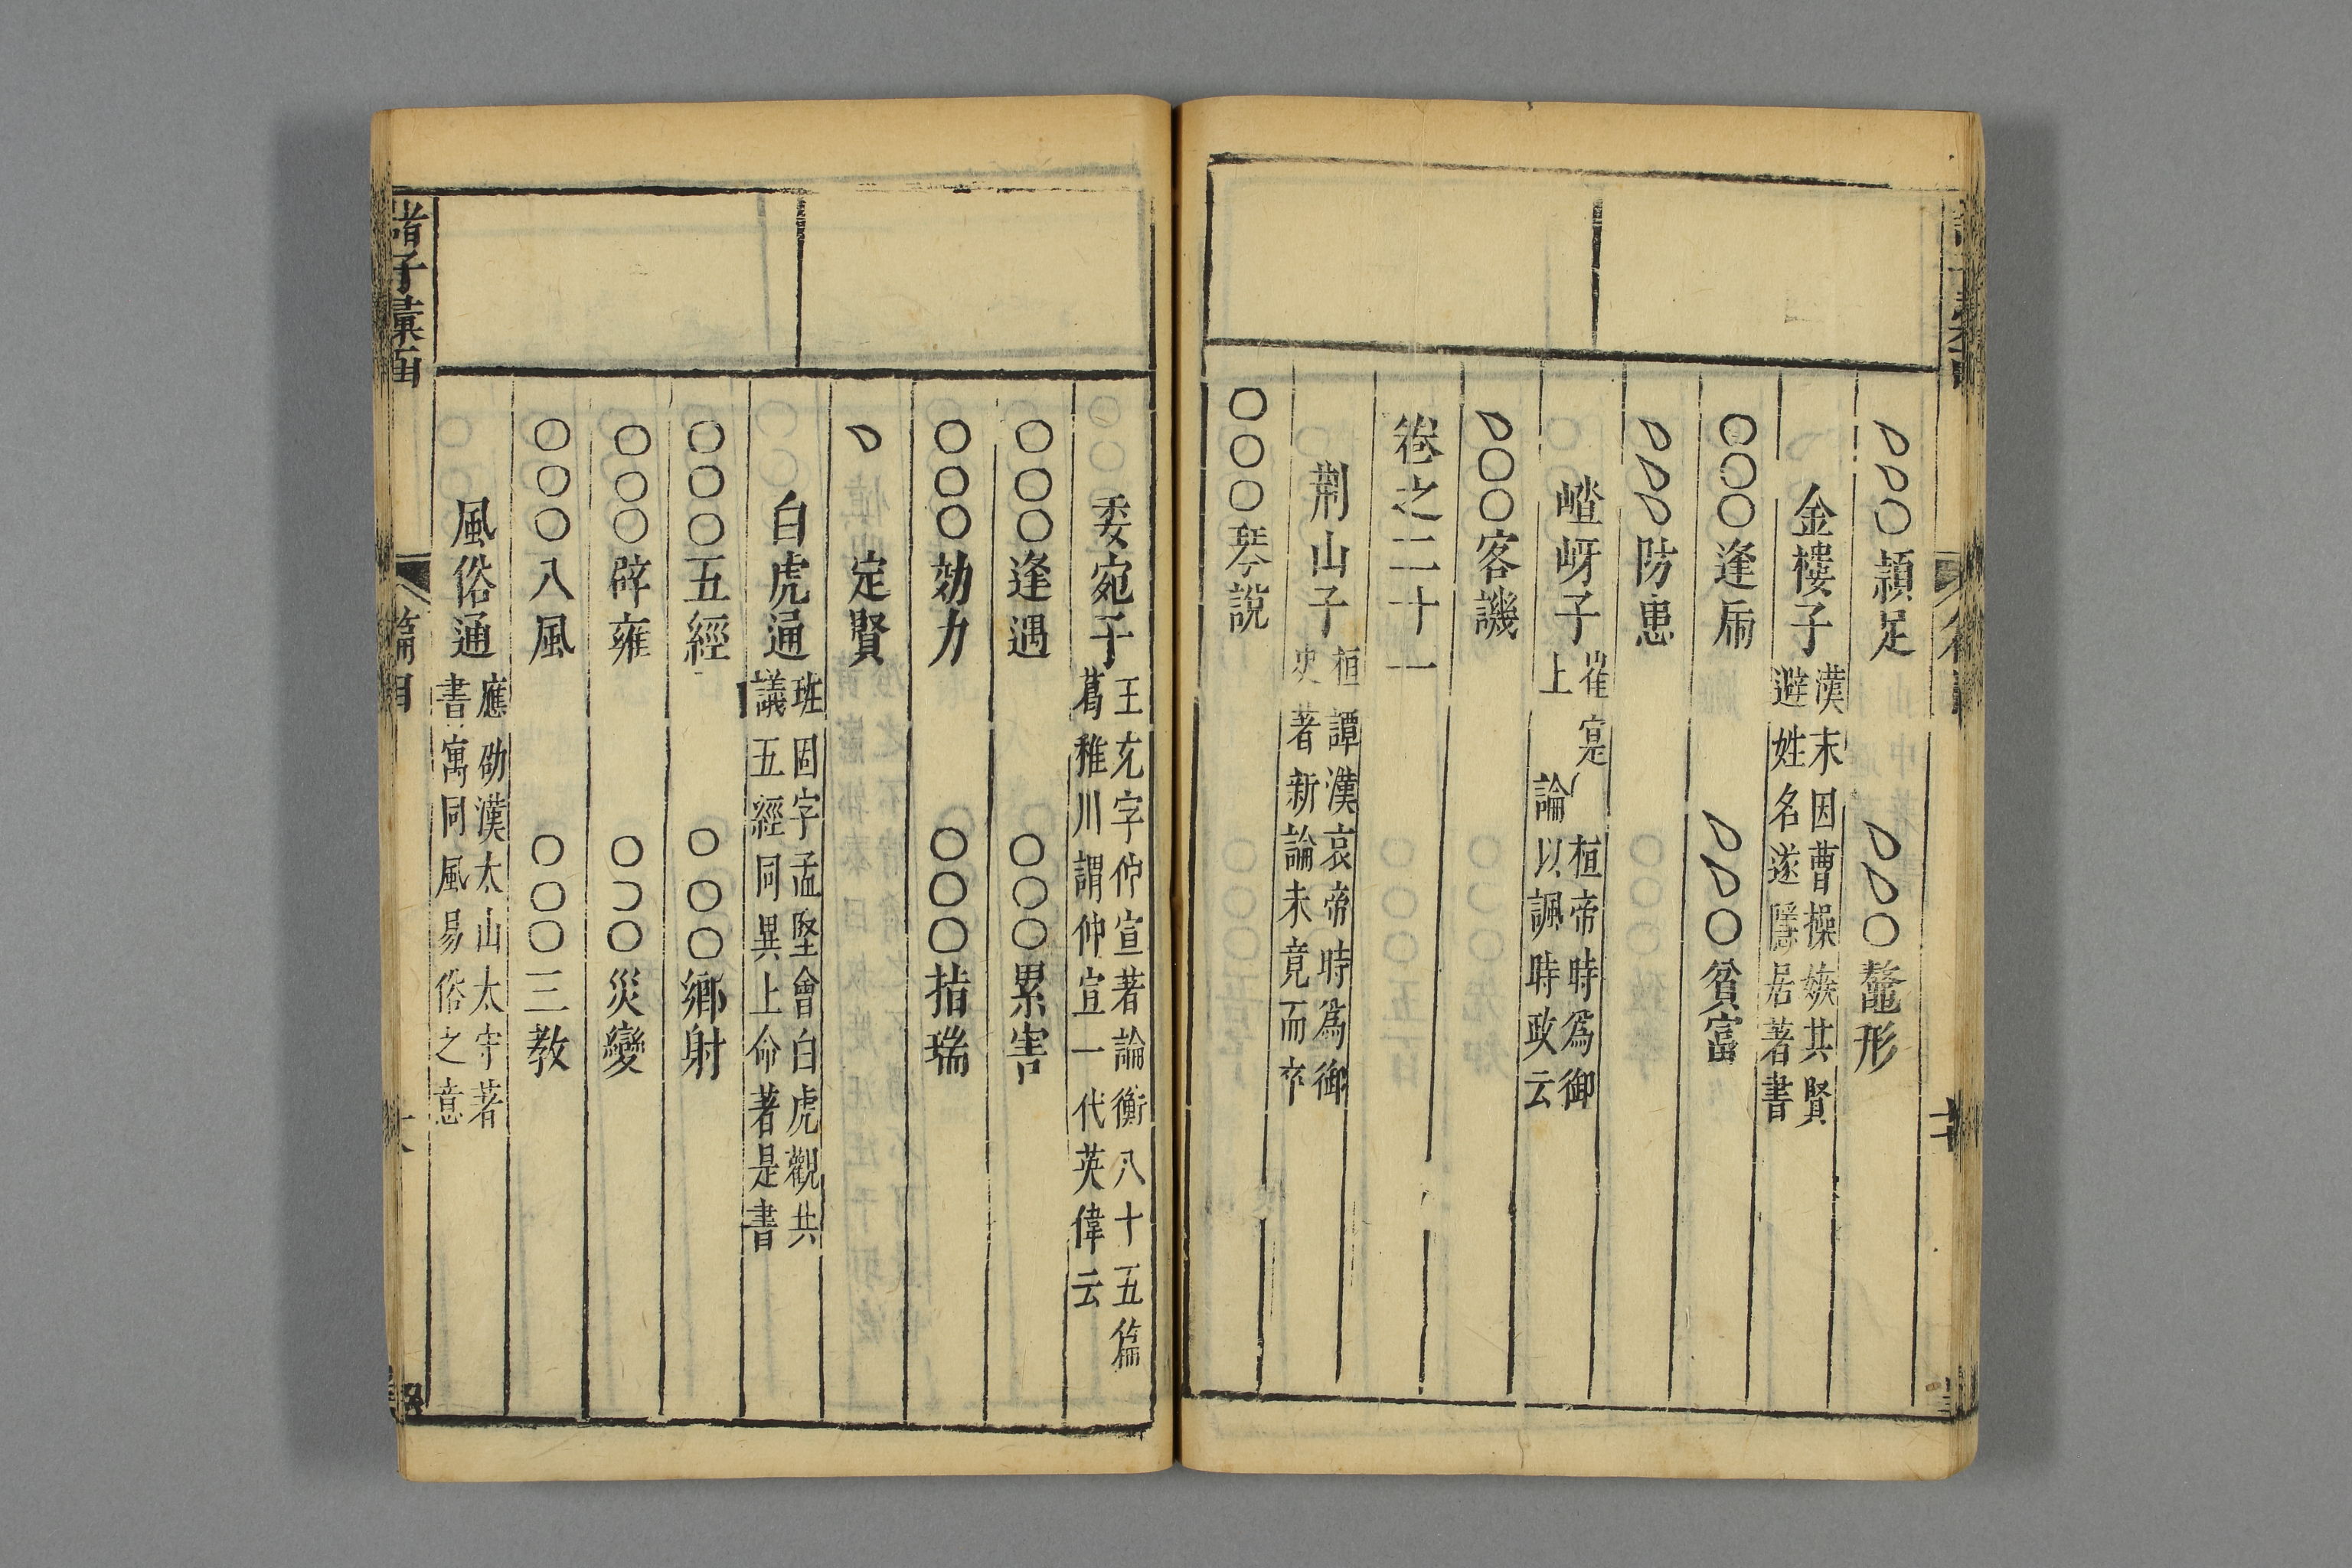 ﹅﹅○頴足　﹅﹅○鼇形
金樓子 漢末因曹操嫉其賢
避姓名遂隱居著書
○○○逢乕　﹅﹅○貧富
﹅﹅﹅防患
嵖岈子 崔寔桓帝時爲御
上論以諷時政云
﹅○○客譏
卷之二十一
荆山子 桓譚漢哀帝時爲御
史著新論未竟而卒
○○○琴說
委宛子 王充字仲宣著論衡八十五篇
葛稚川謂仲宣一代英偉云
○○○逢遇　○○○累害
○○○効力　○○○指瑞
﹅　定賢
白虎通 班固字孟堅會白虎觀共
議五經同異上命著是書
○○○五經　○○○鄉射
○○○辟雍　○○○災變
○○○八風　○○○三教
風俗通 應劭漢太山太守著
書寓同風易俗之意
諸子彙函
篇目